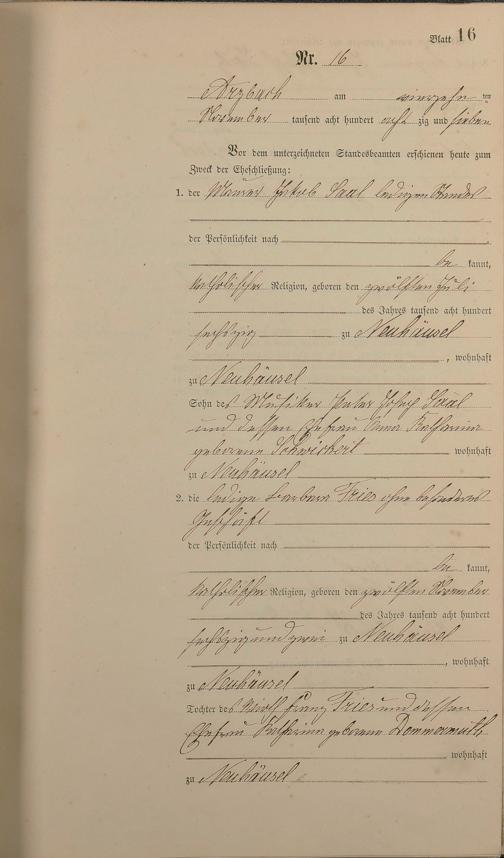 Blatt 16
Nr. 16
Arzbach am vierzehn ten
November tausend acht hundert acht zig und sieben
Vor dem unterzeichneten Standesbeamten erschienen heute zum
Zweck der Eheschließung:
1. der Maurer Jakob Saal ledigen Standes
der Persönlichkeit nach
be kannt,
katholischer Religion, geboren den zwölften Juli
des Jahres tausend acht hundert
sechszig zu Neuhäusel
, wohnhaft
zu Neuhäusel
Sohn des Musiker Peter Josef Saal
und dessen Ehefrau Anna Katharina
geborene Schwickert wohnhaft
zu Neuhäusel
2. die ledige Barbara Fries ohne besonderes
Geschäft
der Persönlichkeit nach
be kannt,
katholischer Religion, geboren den zwölften November
des Jahres tausend acht hundert
sechszig und zwei zu Neuhäusel
, wohnhaft
zu Neuhäusel
Tochter des Adolf Franz Fries und dessen
Ehefrau Katharina geborene Dommermuth
wohnhaft
zu Neuhäusel